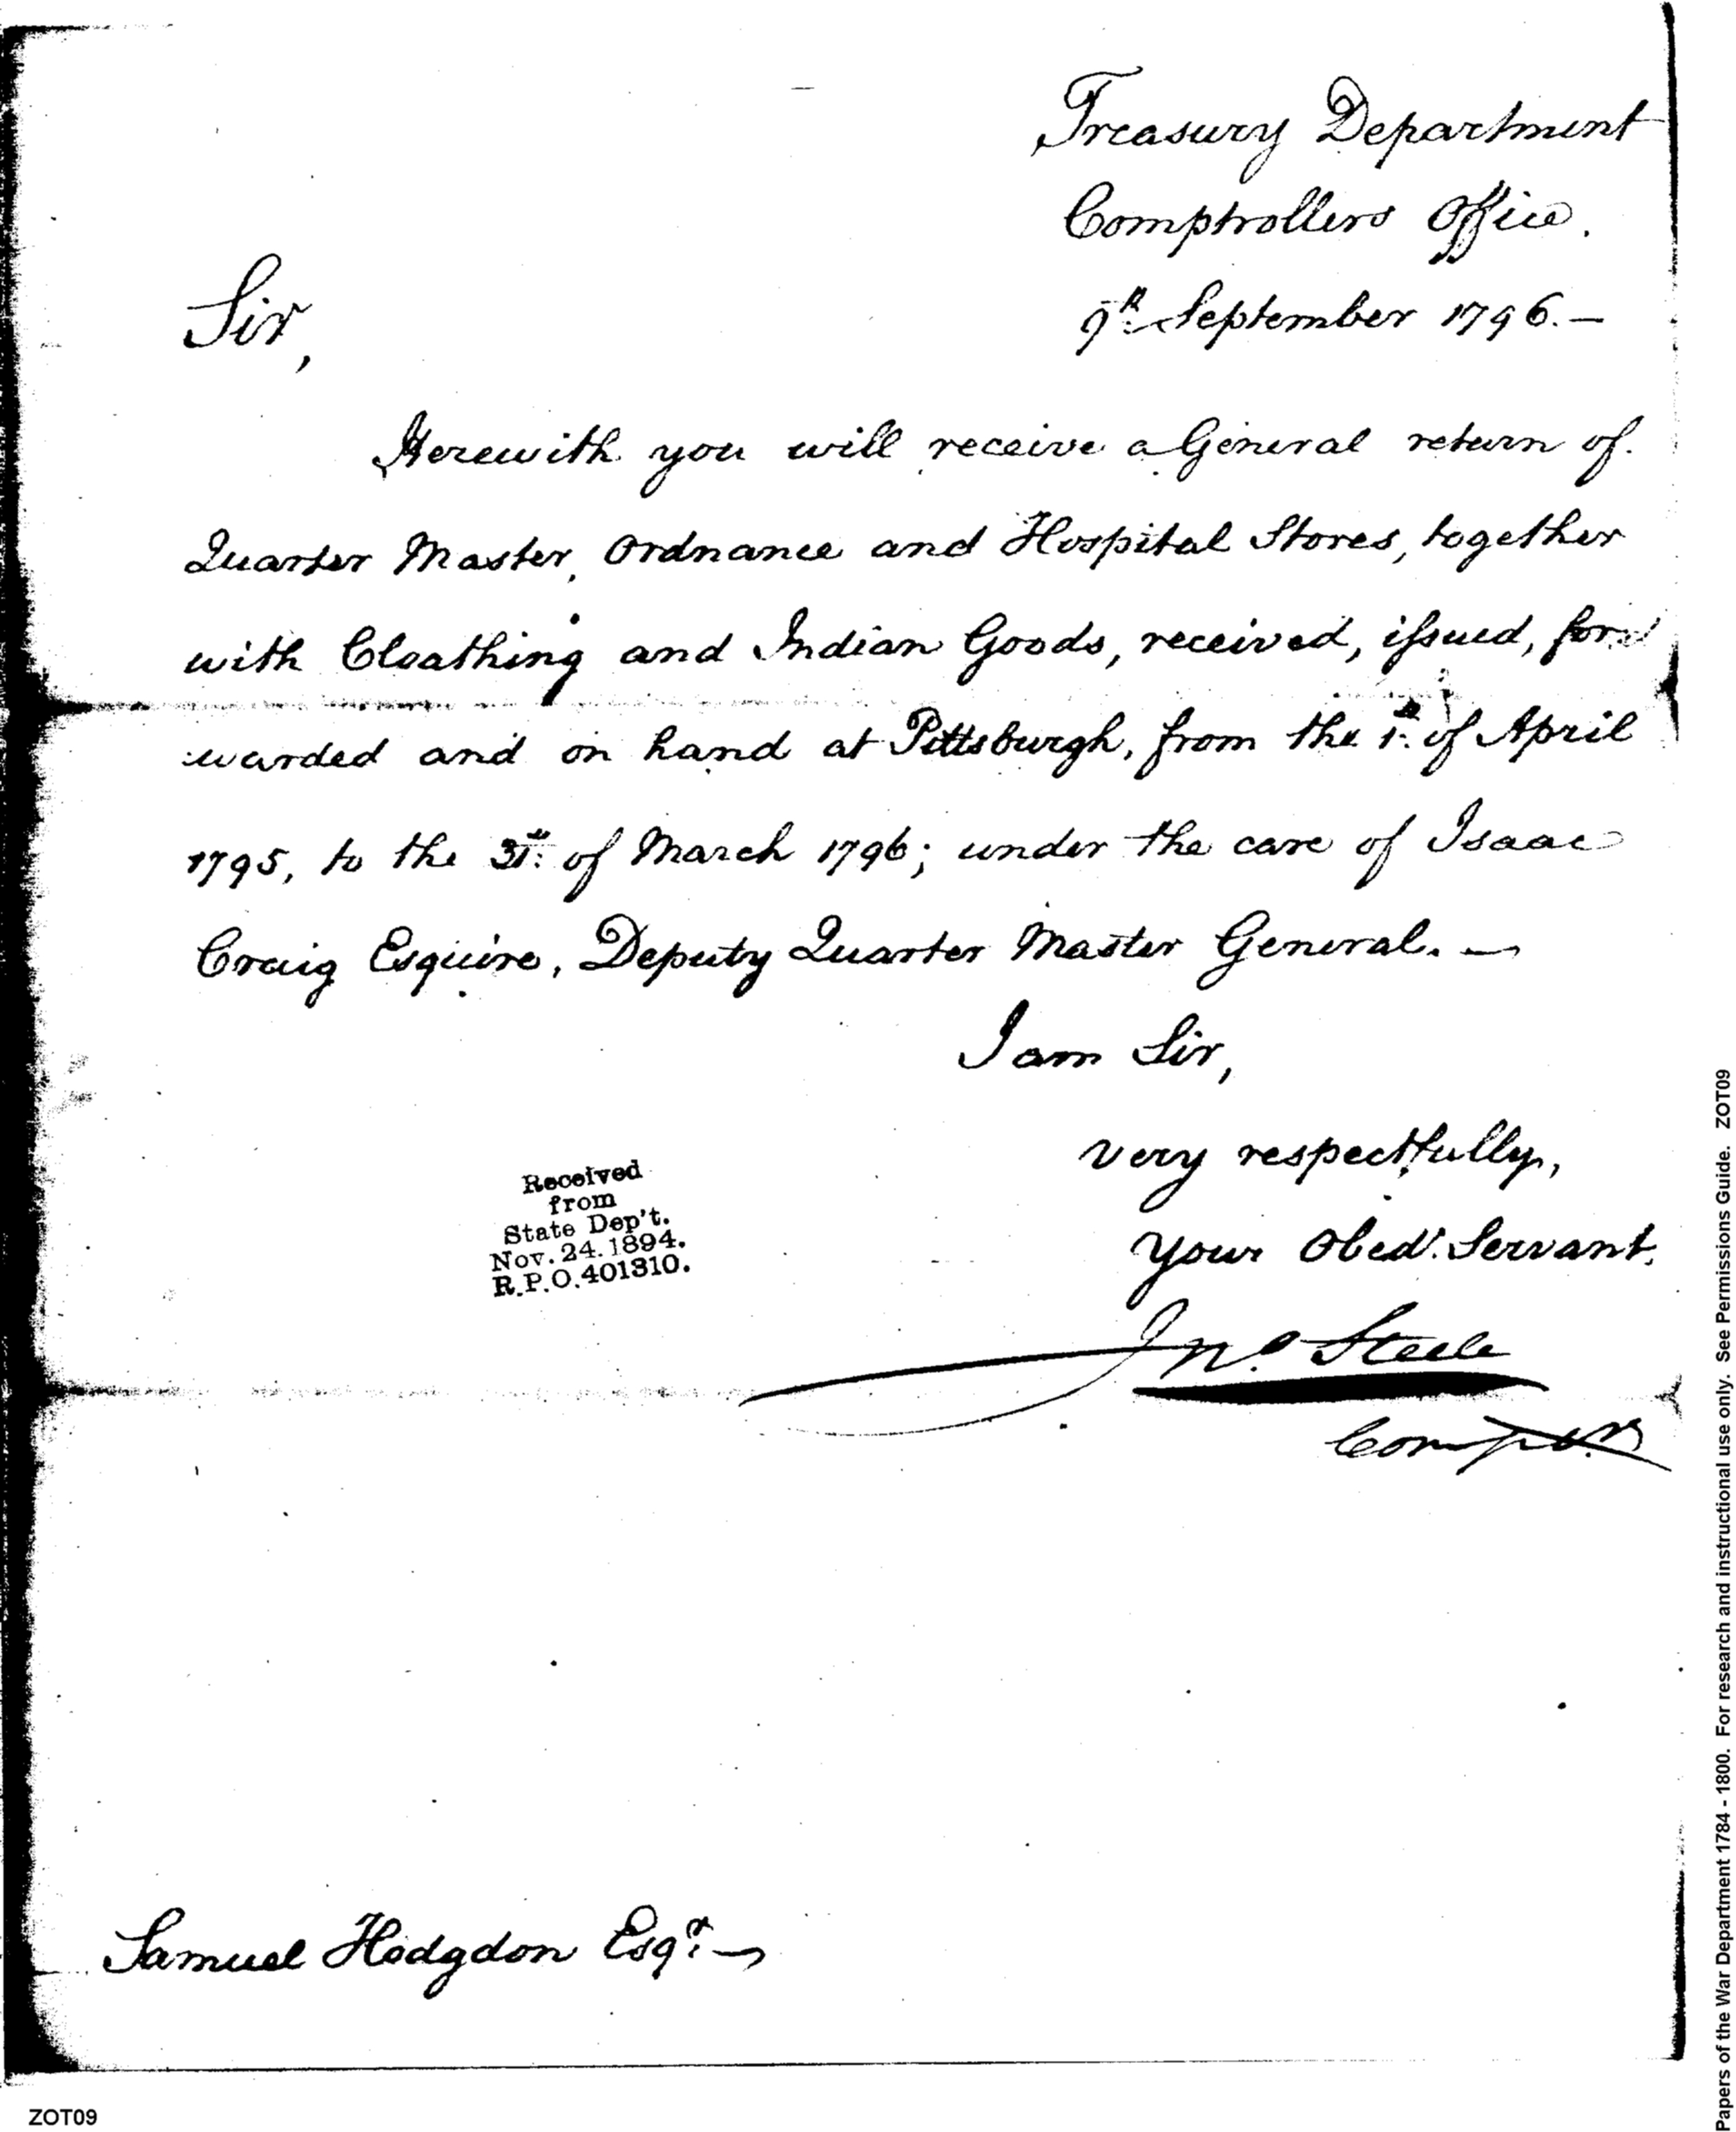 Treasury Department
Comptrollers Office.
9th September 1796.—
Sir,
Herewith you will receive a General return of
Quarter Master, Ordnance and Hospital Stores, together
with Cloathing and Indian Goods, received, issued, for
warded and on hand at Pittsburgh, from the 1st of April
1795, to the 31st of March 1796; under the care of Isaac
Craig Esquire, Deputy Quarter Master General.—
I am Sir,
very respectfully,
Your Obedt. Servant,
Jno. Steele
Compr.
Received
from
State Dep't.
Nov. 24. 1894.
R.P.O. 401310.
Samuel Hodgdon Esqr.—
ZOT09
Papers of the War Department 1784 - 1800. For research and instructional use only. See Permissions Guide. ZOT09